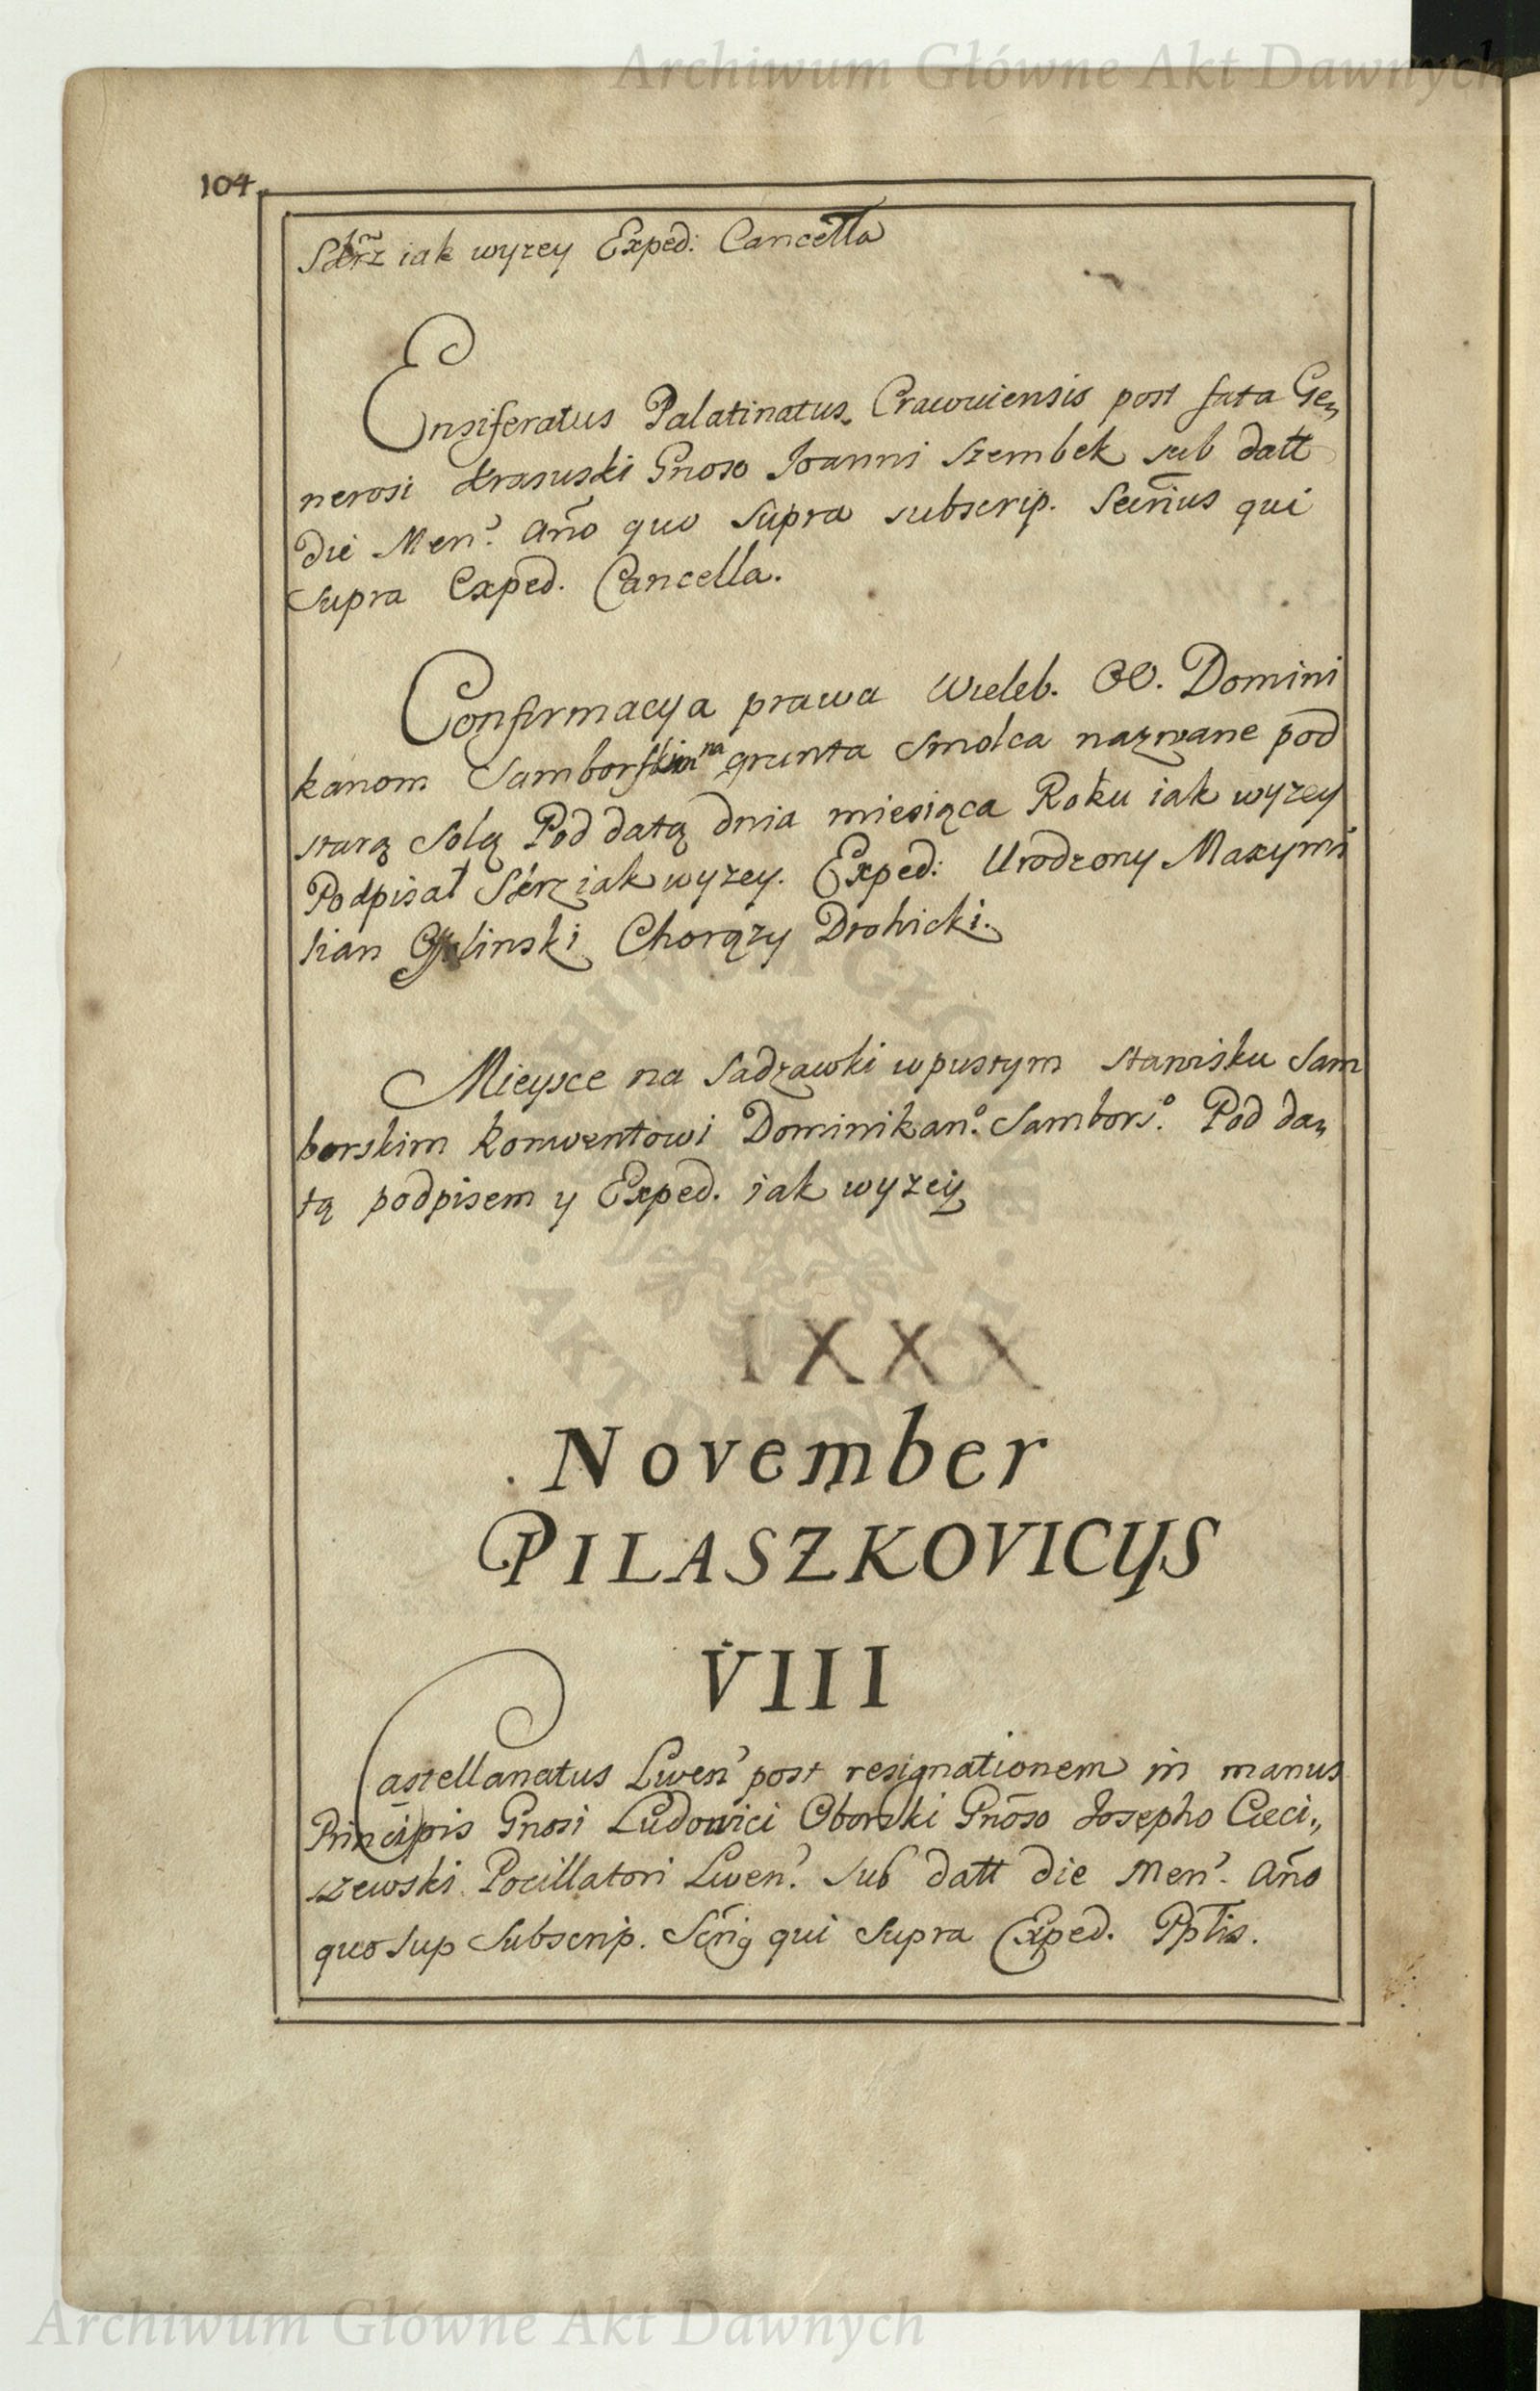 Archiwum Główne Akt Dawnych
104
Skrz iak wyzey Exped: Cancella
Ensiferatus Palatinatus Cracoviensis post fata Ge„
nerosi Krasuski Gnoso Joanni Szembek sub datt
die Men? Año quo supra subscrip. Secrius qui
supra Exped. Cancella.
Confirmacya prawa Wieleb. OO. Domini
kanom Samborskim na grunta Smolca nazwane pod
starą Solą Pod datą dnia miesiąca Roku iak wyzey
Podpisał Skrz iak wyzey. Exped: Urodzony Maxymi
lian Chorąży Drohicki.
Mieysce na Sadzawki w pustym stawisku Sam
borskim Konwentowi Dominikan.° Sambors.° Pod da„
tą podpisem y Exped. iak wyzey
IXXX
November
PILASZKOVICYS
VIII
Castellanatus Liven? post resignationem in manus
Principis Gnosi Ludovici Oborski Gnoso Josepho Cieci„
szewski Pocillatori Liven? Sub datt die Men? Año
quo sup Subscrip. Scrig qui supra Exped. Pptis.
ARCHIWUM GŁÓWNE · AKT DAWNYCH ·
Archiwum Główne Akt Dawnych